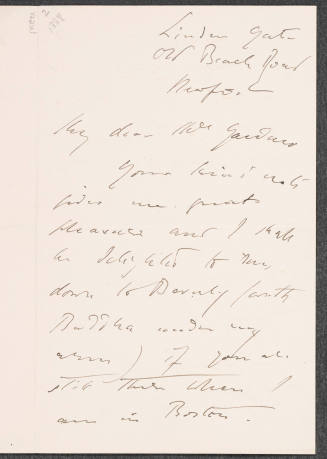 Linden Gate
Old Beach Road
Newport
My dear Mrs Gardner
Your kind note
gives me great
pleasure and I shall
be delighted to run
down to Beverly (with
Buddha under my
arm) if you are
still there when I
am in Boston.